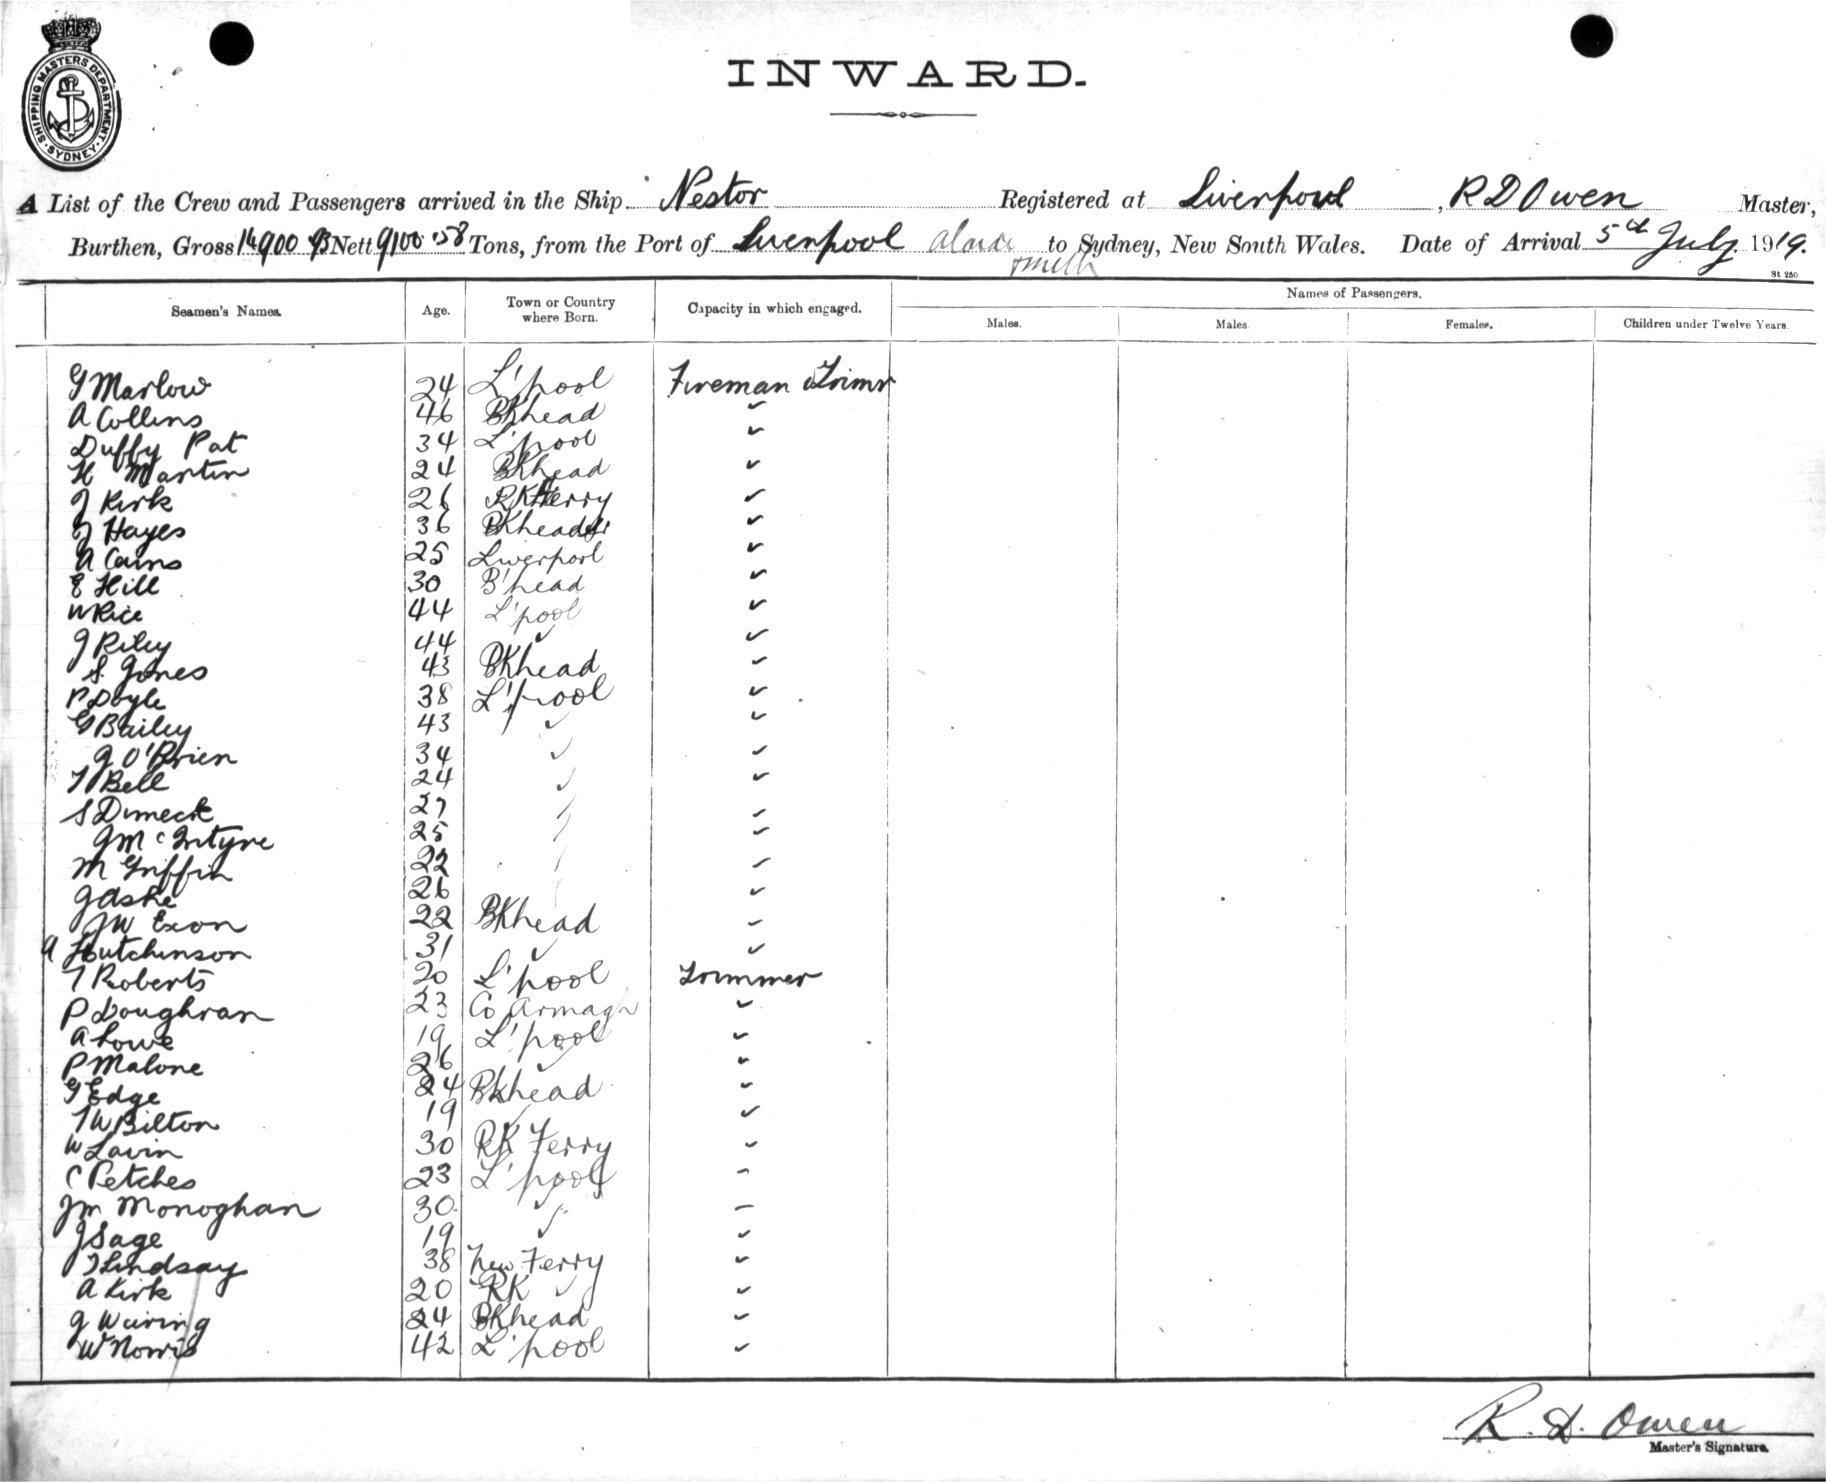 SHIPPING MASTERS DEPARTMENT · SYDNEY ·
INWARD.
A List of the Crew and Passengers arrived in the Ship Nestor Registered at Liverpool, R D Owen Master,
Burthen, Gross 14900 Nett 9100·58 Tons, from the Port of Liverpool to Sydney, New South Wales. Date of Arrival 5th July 1919.
St 250
Seamen's Names. Age. Town or Country where Born. Capacity in which engaged. Names of Passengers.
Males. Males. Females. Children under Twelve Years.
G Marlow 24 L'pool Fireman & Trimr
A Collins 46 BKhead ✓
Duffy Pat 34 L'pool ✓
H Martin 24 BKhead ✓
J Kirk 26 RK Ferry ✓
J Hayes 36 BKhead ✓
A Cains 25 Liverpool ✓
E Hill 30 B'head ✓
W Rice 44 L'pool ✓
J Riley 44 ✓ ✓
S. Jones 43 BKhead ✓
P Doyle 38 L'pool ✓
G Bailey 43 ✓ ✓
J O'Brien 34 ✓ ✓
T Bell 24 ✓ ✓
S Dimeck 27 ✓ ✓
J McIntyre 25 ✓ ✓
M Griffin 22 ✓ ✓
J Ashe 26 ✓ ✓
JW Exon 22 BKhead ✓
A Hutchinson 31 ✓ ✓
T Roberts 20 L'pool Trimmer
P Doughran 23 Co Armagh ✓
A Lowe 19 L'pool ✓
P Malone 26 ✓ ✓
G Edge 24 Bkhead ✓
TW Bilton 19 ✓ ✓
W Lavin 30 RK Ferry ✓
C Petches 23 L'pool ✓
Jm Monoghan 30 ✓ ✓
J Sage 19 ✓ ✓
T Lindsay 38 New Ferry ✓
A Kirk 20 RK ✓ ✓
J Waring 24 BKhead ✓
W Norris 42 L'pool ✓
R. D. Owen
Master's Signature.